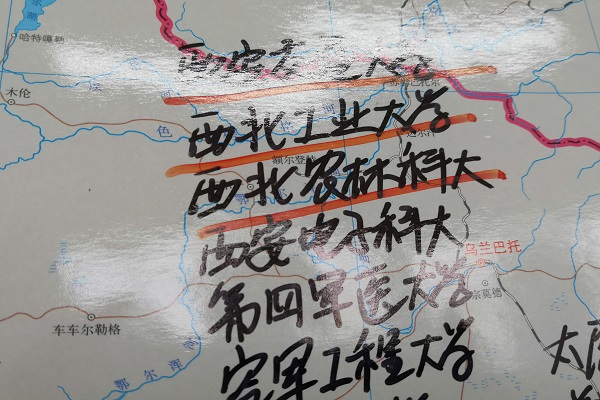 哈特嘎勒
木伦
西安交通大学
西北工业大学
额尔登特
西北农林科大
西安电子科大
乌兰巴托
宗莫德
第四军医大学
车车尔勒格
空军工程大学
鄂尔浑
太原
色